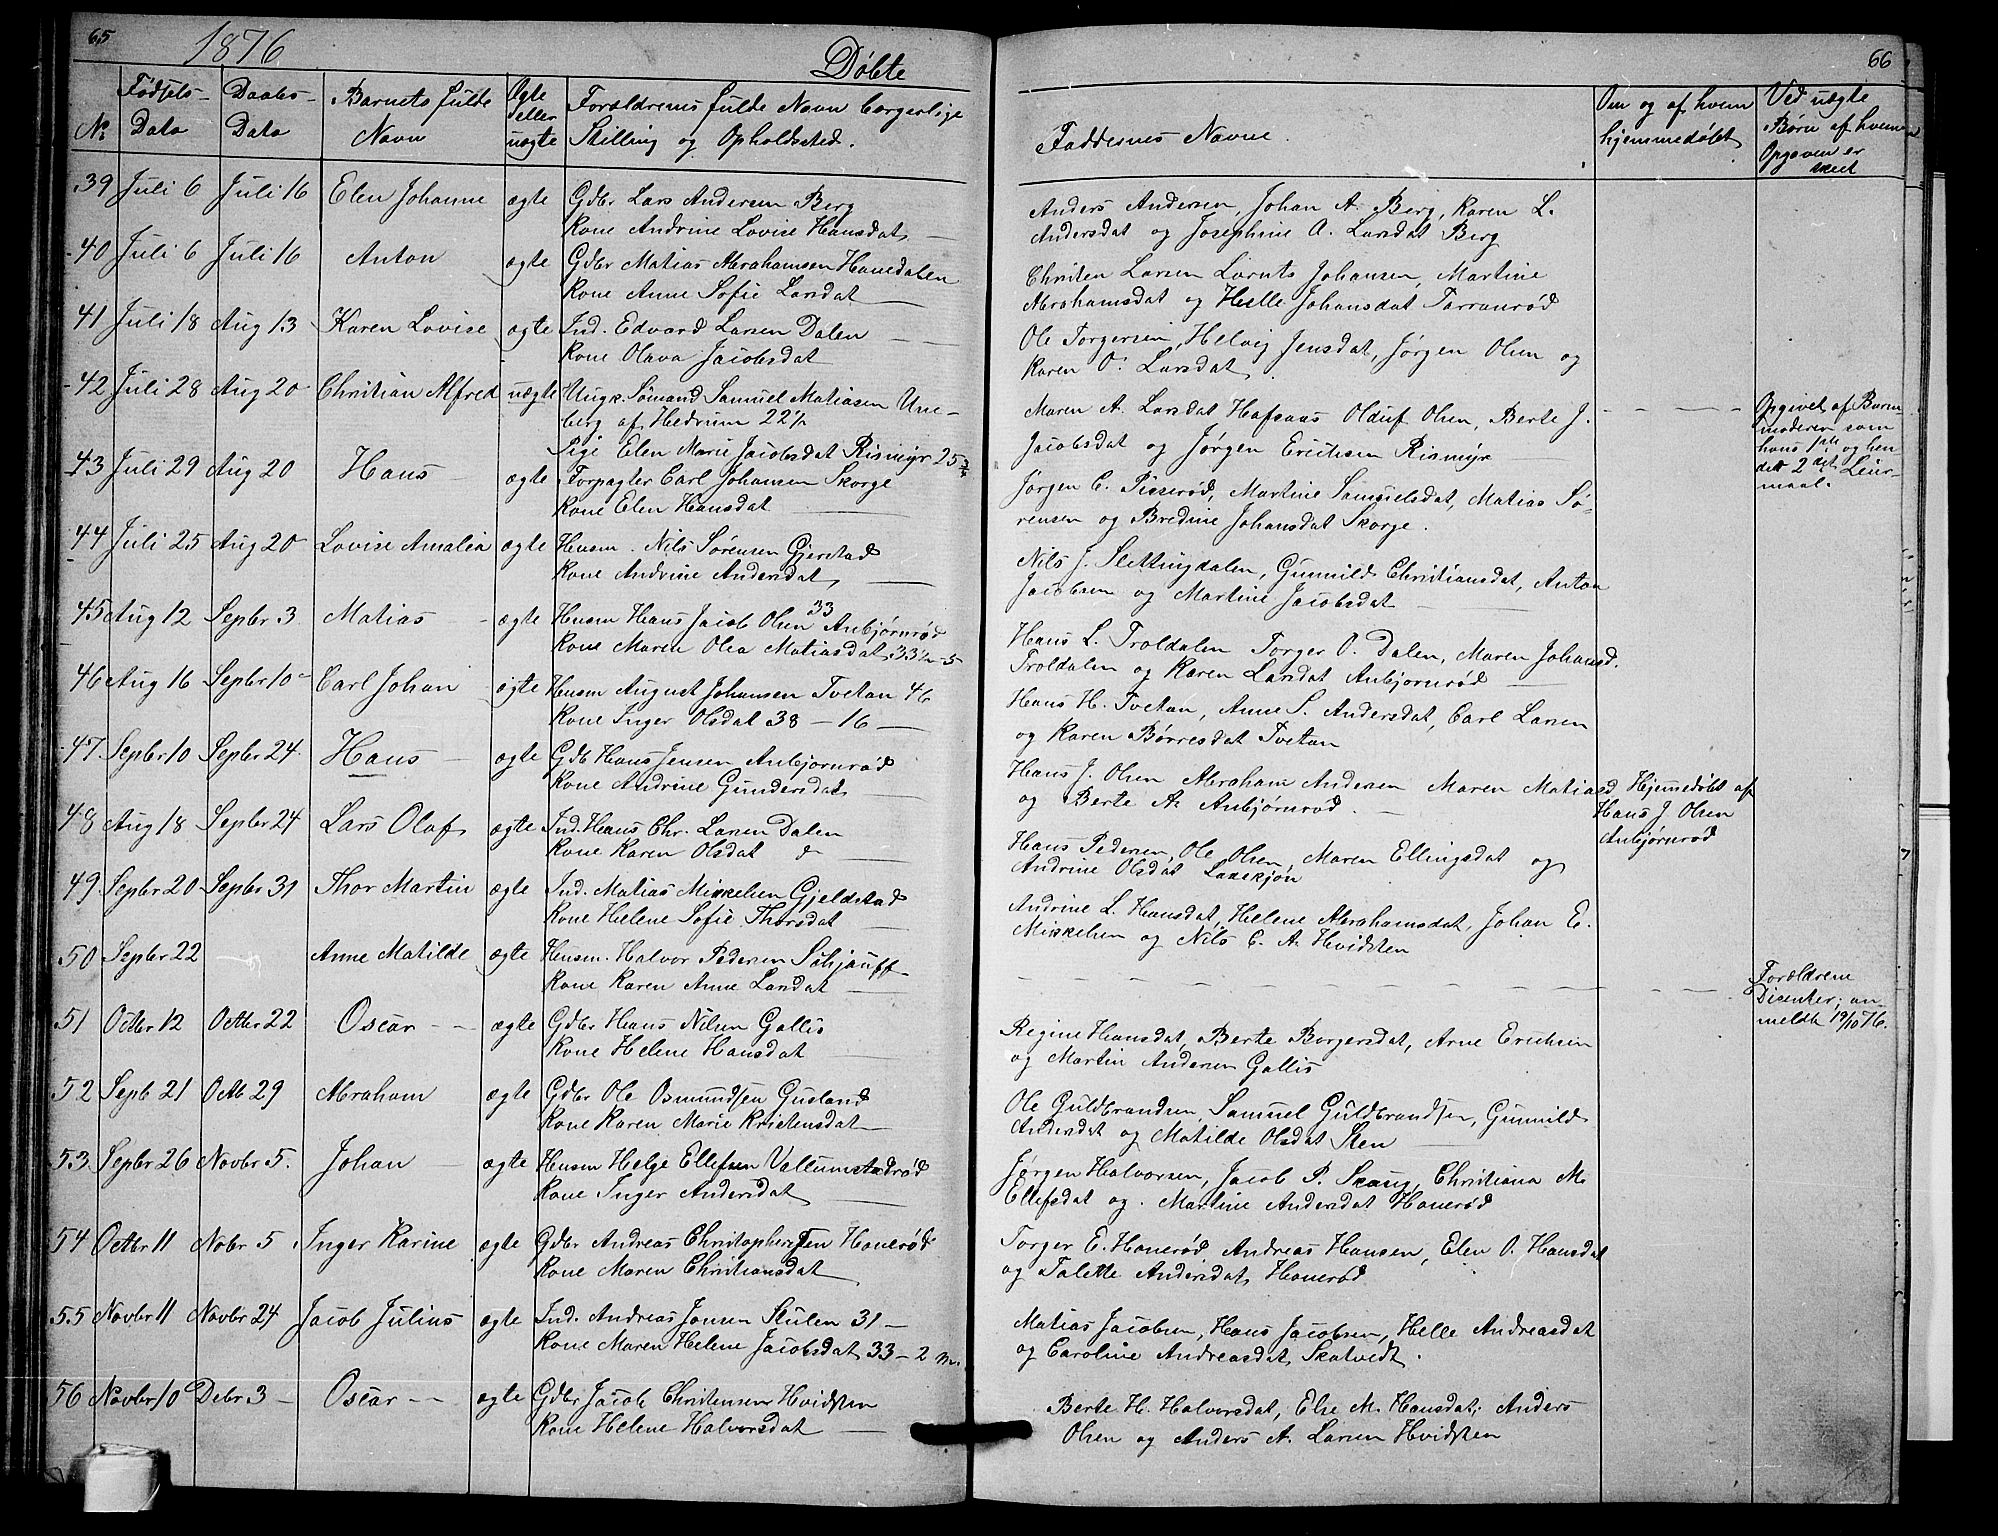 65
1876
Døbte
No
Fødsels-
Dato
Daabs-
Dato
Barnets fulde
Navn
Ægte
eller
uægte
Forældrenes fulde Navn borgerlige
Stilling og Opholdssted.
39 Juli 6 Juli 16 Elen Johanne ægte Gdbr Lars Andersen Berg
Kone Andrine Lovise Hansdat
40 Juli 6 Juli 16 Anton ægte Gdbr Matias Abrahamsen Hanedalen
Kone Anne Sofie Larsdat
41 Juli 18 Aug 13 Karen Lovise ægte Ind. Edvard Larsen Dalen
Kone Olava Jacobsdat
42 Juli 28 Aug 20 Christian Alfred uægte Ungk. Sømand Samuel Matiasen Une-
berg af Hedrum 22½
Pige Elen Marie Jacobsdat Rismyr 25
43 Juli 29 Aug 20 Hans ægte Forpagter Carl Johansen Skorge
Kone Elen Hansdat
44 Juli 25 Aug 20 Lovise Amalia ægte Husm. Nils Sørensen Gjerstad
Kone Andrine Andersdat
45 Aug 12 Sepbr 3 Matias ægte Husm Hans Jacob Olsen 33 Anbjørnrød
Kone Maren Olea Matiasdat 33½-5
46 Aug 16 Sepbr 10 Carl Johan ægte Husm August Johansen Tvetan 46
Kone Inger Olsdat 38 - 16
47 Sepbr 10 Sepbr 24 Hans ægte Gdb Hans Jensen Anbjørnrød
Kone Andrine Gundersdat
48 Aug 18 Sepbr 24 Lars Olaf ægte Ind. Hans Chr. Larsen Dalen
Kone Karen Olsdat
49 Sepbr 20 Sepbr 31 Thor Martin ægte Ind. Matias Mikkelsen Gjeldstad
Kone Helene Sofie Thorsdat
50 Sepbr 22 Anne Matilde ægte Husm. Halvor Pedersen
Kone Karen Anne Larsdat
51 Octbr 12 Octbr 22 Oscar ægte Gdbr Hans Nilsen Gallis
Kone Helene Hansdat
52 Sepb 21 Octb 29 Abraham ægte Gdbr Ole Osmundsen Gusland
Kone Karen Marie Kristensdat
53 Sepbr 26 Novbr 5. Johan ægte Husm Helge Ellefsen
Kone Inger Andersdat
54 Octbr 11 Nobr 5 Inger Karine ægte Gdbr Andreas Christophersen Hanerød
Kone Maren Christiansdat
55 Novbr 11 Novbr 24 Jacob Julius ægte Ind. Andreas Jonsen Stulen 31
Kone Maren Helene Jacobsdat 33 - 2 m.
56 Novbr 10 Debr 3 Oscar ægte Gdbr Jacob Christensen Hvidsten
Kone Helene Halvorsdat
66
Faddernes Navne.
Om og af hvem
hjemmedøbt
Ved uægte
Børn af hvem
Opgaven er
skeet
Anders Andersen, Johan A. Berg, Karen L.
Andersdat og Josephine A. Larsdat Berg
Christen Larsen Lornts Johansen, Martine
Abrahamsdat og Helle Johansdat Tarranrød
Ole Torgersen, Helvig Jensdat, Jørgen Olsen og
Karen O. Larsdat
Maren A. Larsdat Hafsaas Oluf Olsen, Berte J.
Jacobsdat og Jørgen Erichsen Rismyr
Opgivet af Barne
moderen som
hans 1ste og hen
des 2det Leier-
maal.
Jørgen C. Pisserød, Martine Samuelsdat, Matias Sø-
rensen og Bredine Johansdat Skorge.
Nils J. Slettingdalen, Gunnild Christiansdat, Anton
Jacobsen og Martine Jacobsdat
Hans L. Troldalen Torger O. Dalen, Maren Johansd.
Troldalen og Karen Larsdat Anbjørnrød
Hans H. Tvetan, Anne S. Andersdat, Carl Larsen
og Karen Børresdat Tvetan
Hans J. Olsen Abraham Andersen Maren Matiasd
og Berte A. Anbjørnrød.
Hjemmedøbt af
Hans J. Olsen
Anbjørnrød
Hans Pedersen, Ole Olsen, Maren Ellingsdat og
Andrine Olsdat
Andrine L. Hansdat, Helene Abrahamsdat, Johan E.
Mikkelsen og Nils C. A. Hvidsten
Forældrene
Disenter; an-
meldt 19/10 76.
Regine Hansdat, Berte Borgersdat, Arne Erichsen
og Martin Andersen Gallis
Ole Guldbrandsen, Samuel Guldbrandsen, Gunnild
Andersdat og Matilde Olsdat Sten
Jørgen Halvorsen, Jacob P. Skaug, Christiana M.
Ellefsdat og Martine Andersdat Hanerød
Torger E. Hanerød, Andreas Hansen, Elen O. Hansdat
og Talette Andersdat, Hanerød
Matias Jacobsen, Hans Jacobsen, Helle Andreasdat
og Caroline Andreasdat, Skatvedt.
Berte H. Halvorsdat, Else M. Hansdat, Anders
Olsen og Anders A. Larsen Hvidsten